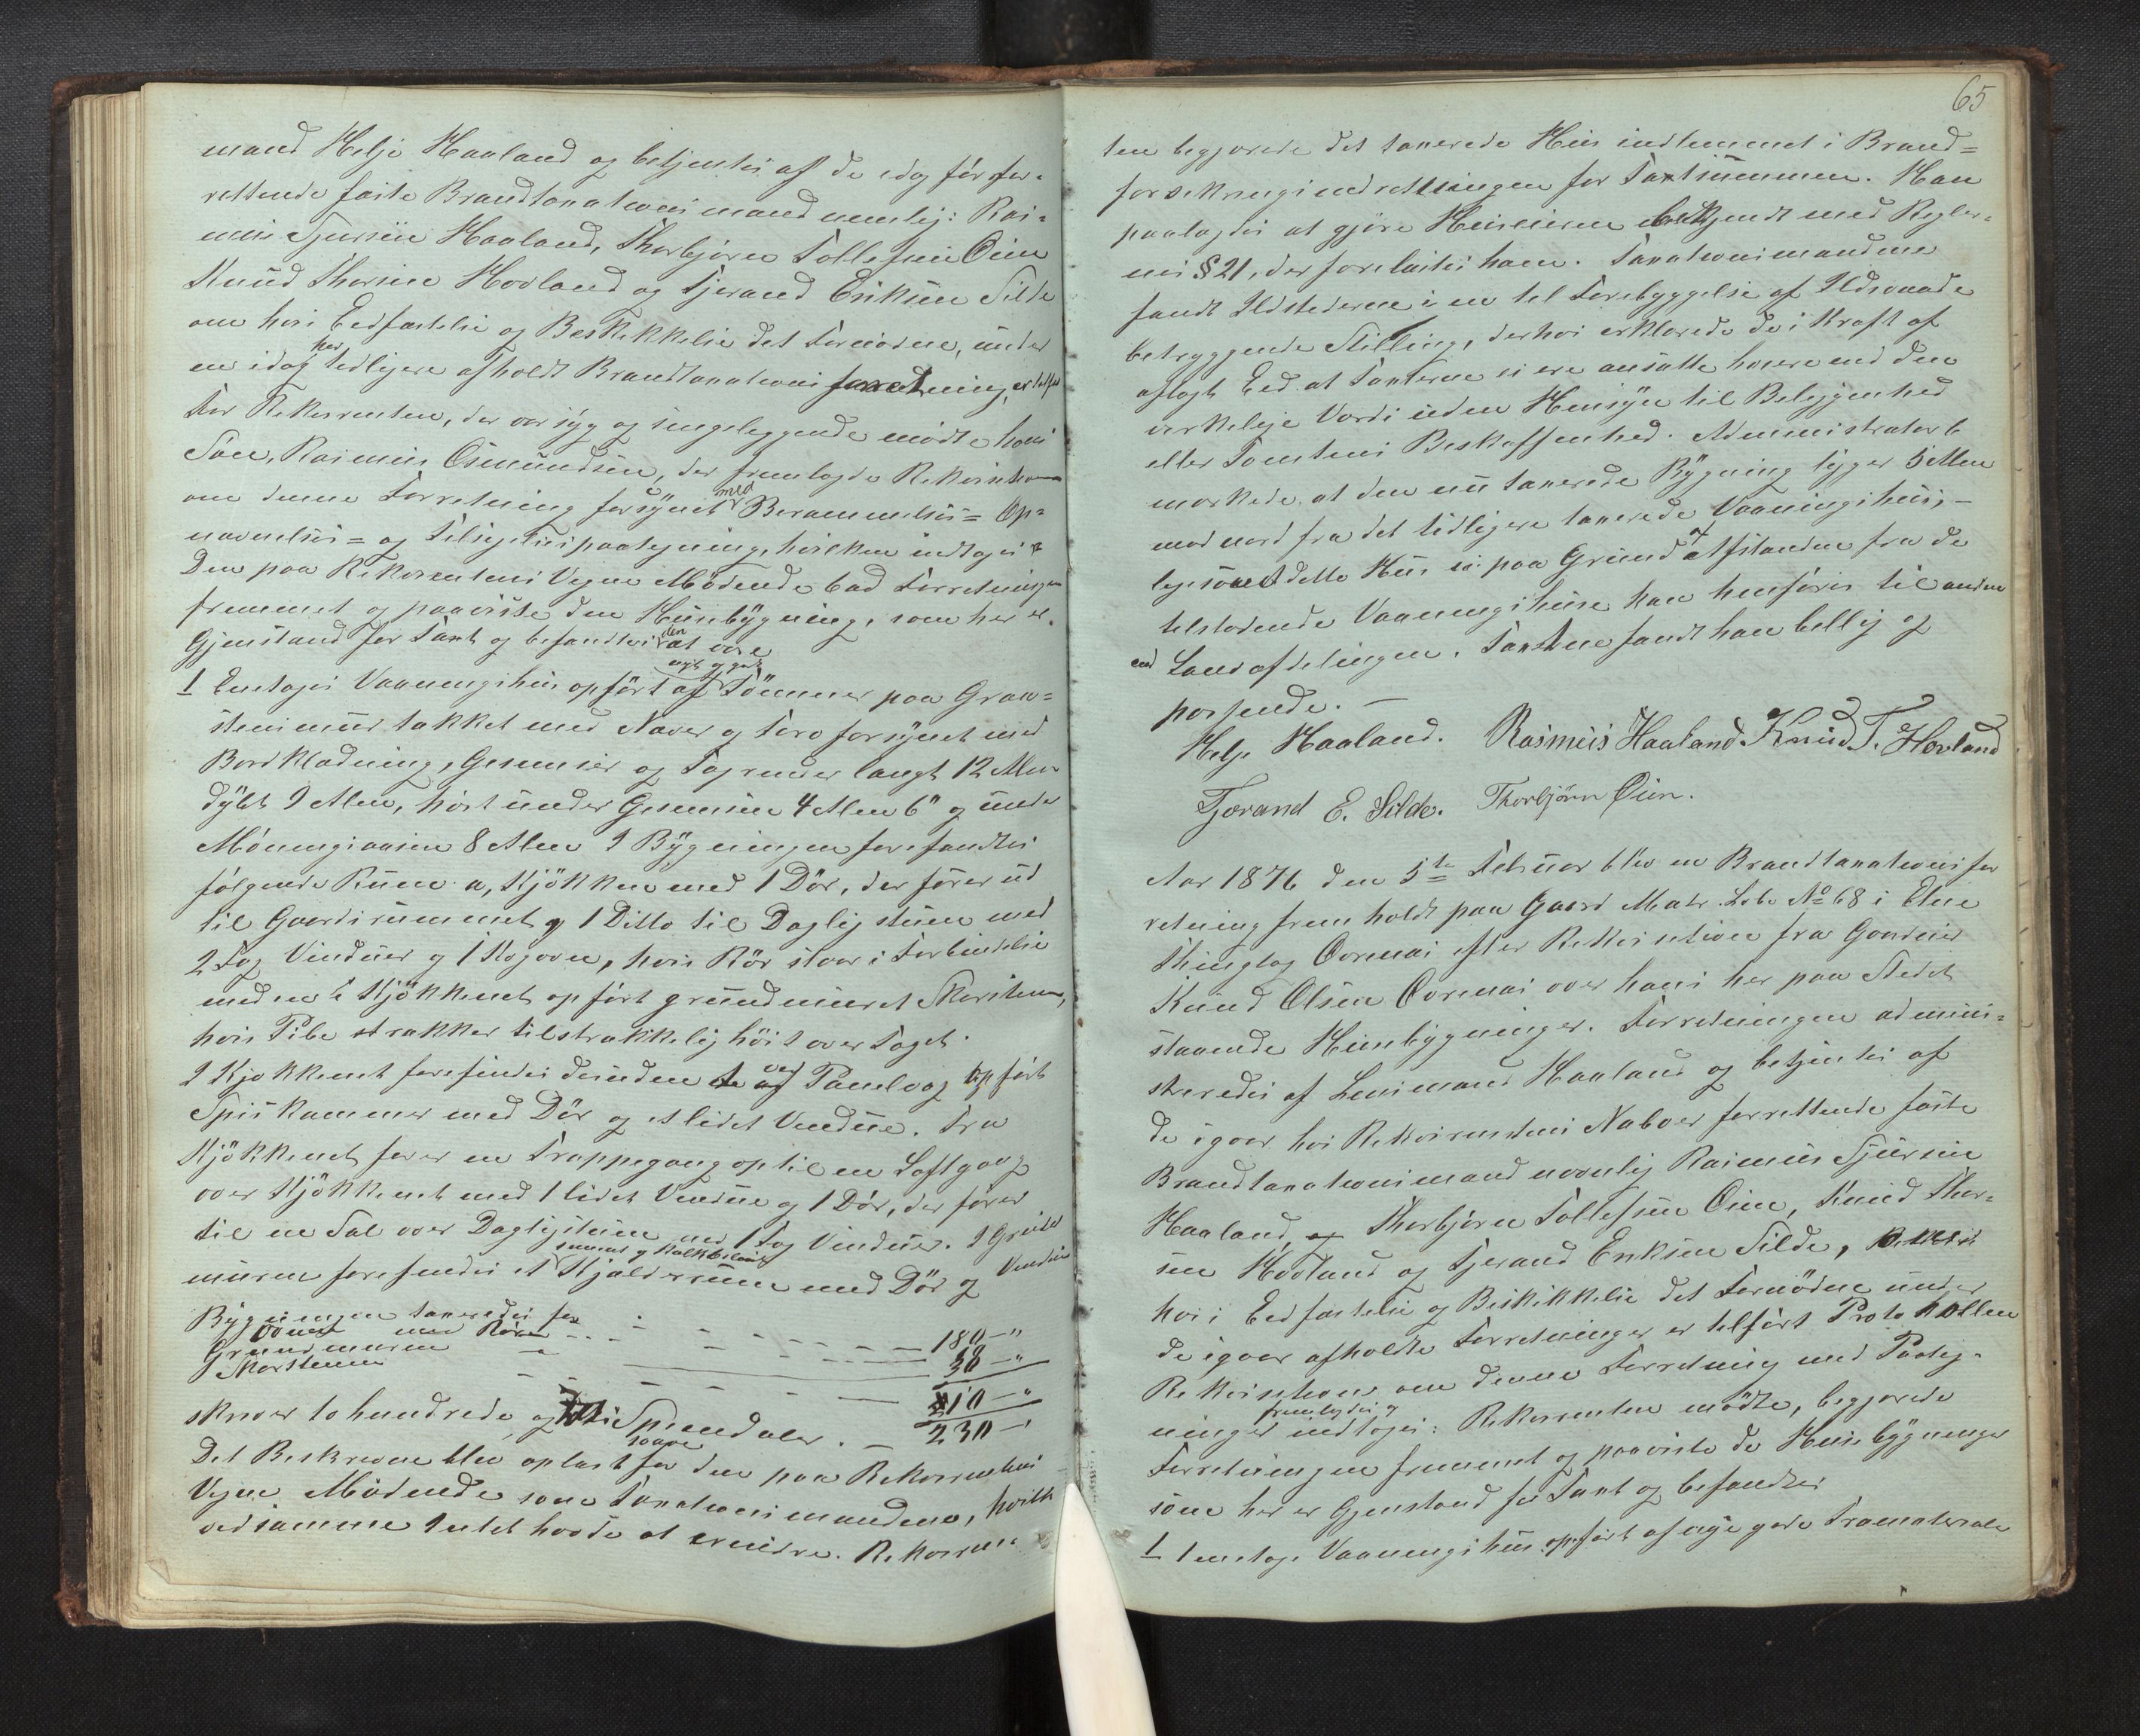 mand Helje Haaland og betjentes af de idag før for-
rettende faste Brandtaxationsmænd nemlig: Ras-
mus Sjursen Haaland, Thorbjørn Tollefsen Øien
Knud Thorsen Hovland og Tjerand Eriksen Silde
om hvis Eedfæstelse og Beskikkelse det Fornødne, under
en idag her tidligere afholdt Brandtaxationsforretning, er tilført
For Rekvirenten, der var syg og sengeliggende mødte hans
Søn, Rasmus Osmundsen, der fremlagde Rekvisition
om denne Forretning forsynet med Berammelses- Op-
nævnelses- og Tilsigelsespaategning, hvilken indtages
Den paa Rekvirentens Vegne Mødende bad Forretningen
fremmet og paaviste den Husebygning, som her er
Gjenstand for Taxt og befandtes den at være
1 Enetages Vaaningshus opført af nyt og godt Tømmer paa Graa-
stensmur takket med Næver og Torv forsynet med
Bordklædning, Gesimser og Tagrender langt 12 Alen
dybt 9 Alen, høit under Gesimsen 4 Alen 6" og under
Mønningsaasen 8 Alen I Bygningen forefandtes
følgende Rum a, Kjøkken med 1 Dør, der fører ud
til Gaardsrummet og 1 Ditto til Dagligstuen med
2 Fag Vinduer og 1 Kogovn, hvis Rør staar i Forbindelse
med en i Kjøkkenet opført grundmuret Skorsten,
hvis Pibe strækker tilstrækkelig høit over Taget.
I Kjøkkenet forefindes desuden et af Panelvæg opført
Spiskammer med Dør og et lidet Vindue. Fra
Kjøkkenet fører en Trappegang op til en Loftgang
over Kjøkkenet med 1 lidet Vindue og 1 Dør, der fører
til en Sal over Dagligstuen med 1 Fag Vinduer. I Grund
muren forefindes et muret og kalkbeslaaet Kjælderrum med Dør og Vindue
Bygningen taxeredes for - - - - - 180 - "
Ovnen med Rører
Grundmuren - - - - - 30 - "
Skorstenen - - - - 10 - "
230 -
skriver to hundrede og Spesidaler. -
Det Beskrevne blev oplæst saavel for den paa Rekvirentens
Vegne Mødende som Taxationsmændene, hvilke
ved samme Intet havde at erindre. Rekviren-
65
ten begjærede det taxerede Hus indlemmet i Brand-
forsikringsindretningen for Taxtsummen. Han
paalagdes at gjøre Huseieren bekjendt med Regler-
nes § 21, der forelæstes ham. Taxationsmændene
fandt Ildstederne i en til Forebyggelse af Ildsvaade
betryggende Stilling, derhos erklærede de i Kraft af
aflagt Eed at Taxterne ei ere ansatte høiere end den
virkelige Værdi uden Hensyn til Beliggenhed
eller Tomtens Beskaffenhed. Administrator be
mærkede at den nu taxerede Bygning ligger 5 Alen
mod nord fra det tidligere taxerede Vaaningshus, -
ligesom dette Hus ei paa Grund af Afstanden fra de
tilstødende Vaaningshuse kan henføres til anden
end Landafdelingen. Taxterne fandt han billig og
passende. -
Helje Haaland. Rasmus Haaland Knud T. Hovland
Tjerand E. Silde. Thorbjørn Øien.
Aar 1876 den 5te Februar blev en Brandtaxationsfor
retning fremholdt paa Gaard Matr. Løbe No 68 i Etne
Thinglag Øvrenæs efter Rekvisition fra Gaardeier
Knud Olsen Øvrenæs over hans her paa Stedet
staaende Husebygninger. Forretningen admini-
streredes af Lensmand Haaland og betjentes af
de igaar hos Rekvirentens Naboer forrettende faste
Brandtaxationsmænd navnlig Rasmus Sjursen
Haaland, og Thorbjørn Tollefsen Øien, Knud Thor-
sen Hovland og Tjerand Eriksen Silde,
hvis Eedfæstelse og Beskikkelse det Fornødne under
de igaar afholdte Forretninger er tilført Protokollen
Rekvisition om denne Forretning med Paateg-
ninger fremlagdes og indtages: Rekvirenten mødte, begjærede
Forretningen fremmet og paaviste de Husebygninger
som her er Gjenstand for Taxt og befandtes
1 1 enetages Vaaningshus opført af nye gode Træmaterialer